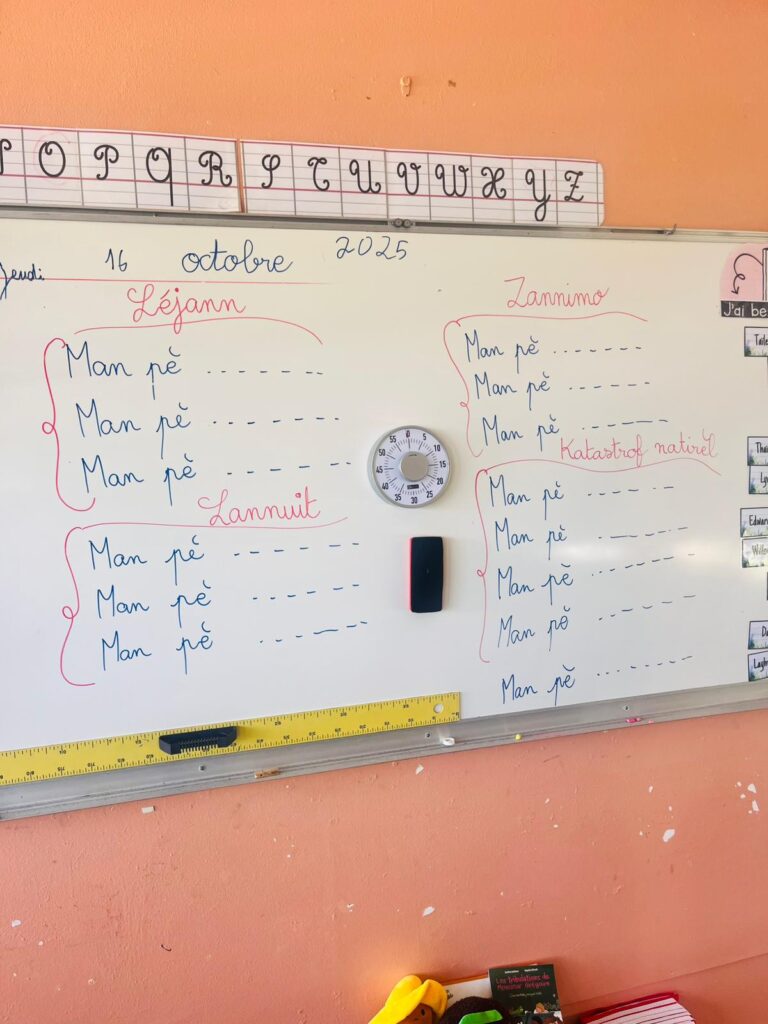 O P Q R S T U V W X Y Z
Jeudi 16 octobre 2025
Léjann
Man pè .......
Man pè .......
Man pè .......
Lannuit
Man pè .......
Man pè .......
Man pè .......
Zannimo
Man pè .......
Man pè .......
Man pè .......
Katastrof natirèl
Man pè .......
Man pè .......
Man pè .......
Man pè .......
Man pè .......
55 0 5 10 15 20 25 30 35 40 45 50
J'ai be
Les tribulations de
Monsieur Grégoire